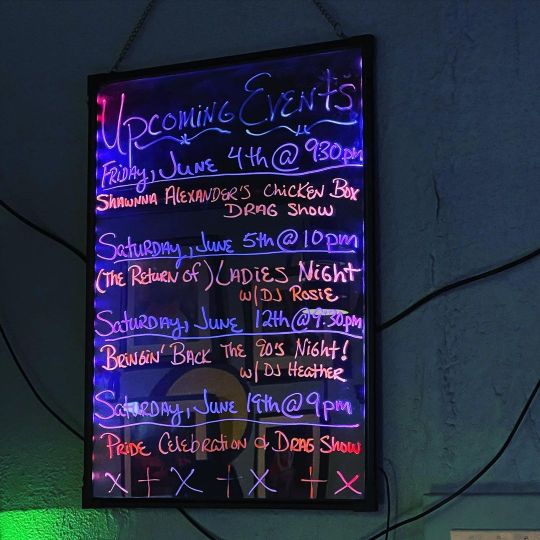 Upcoming Events
Friday, June 4th @ 930pm
Shawnna Alexander's Chicken Box
Drag Show
Saturday, June 5th @ 10pm
(The Return of) Ladies Night
w/DJ Rosie
Saturday, June 12th @ 9:30pm
Bringin' Back The 90's Night!
w/DJ Heather
Saturday, June 19th @ 9pm
Pride Celebration & Drag Show
x + x + x + x